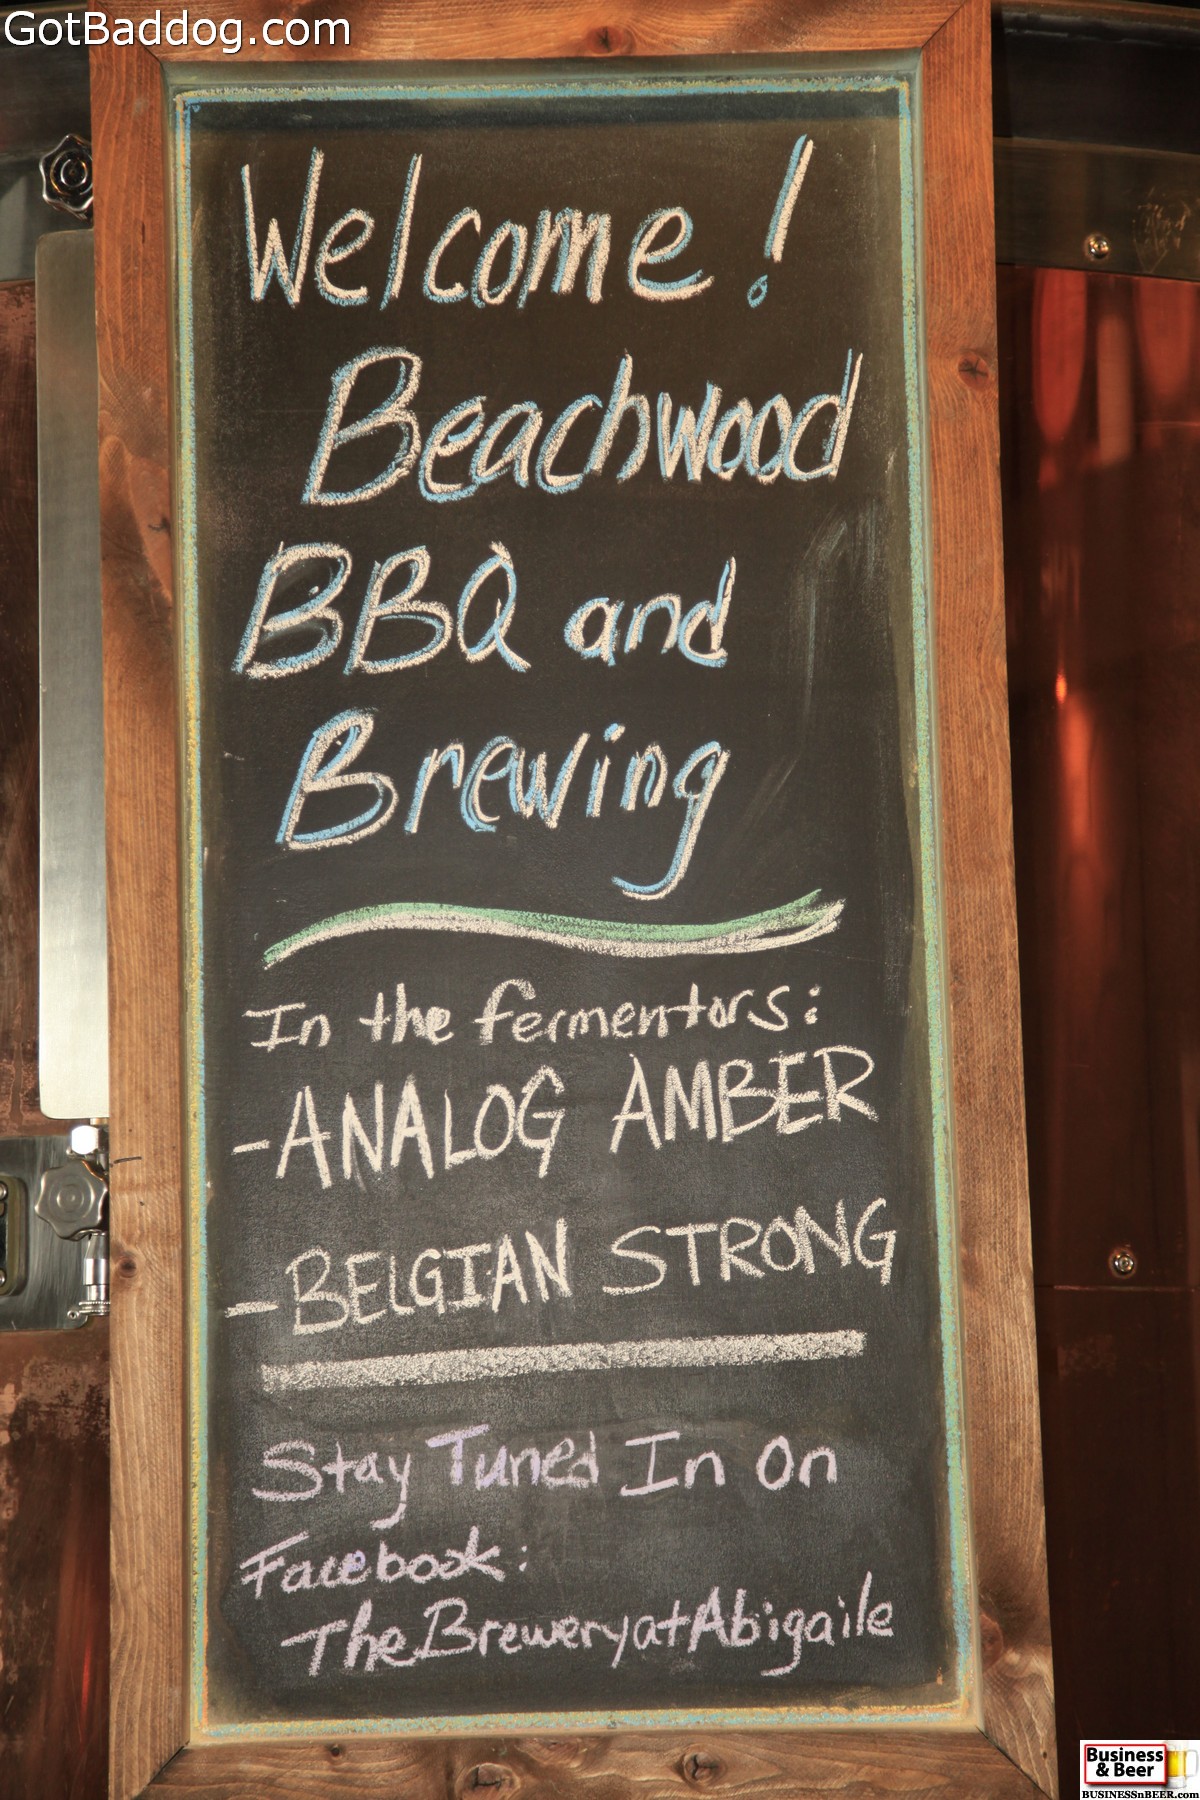 GotBaddog.com
Welcome!
Beachwood
BBQ and
Brewing
In the fermentors:
-ANALOG AMBER
-BELGIAN STRONG
Stay Tuned In On
Facebook:
TheBreweryatAbigaile
Business
& Beer
BUSINESSnBEER.com